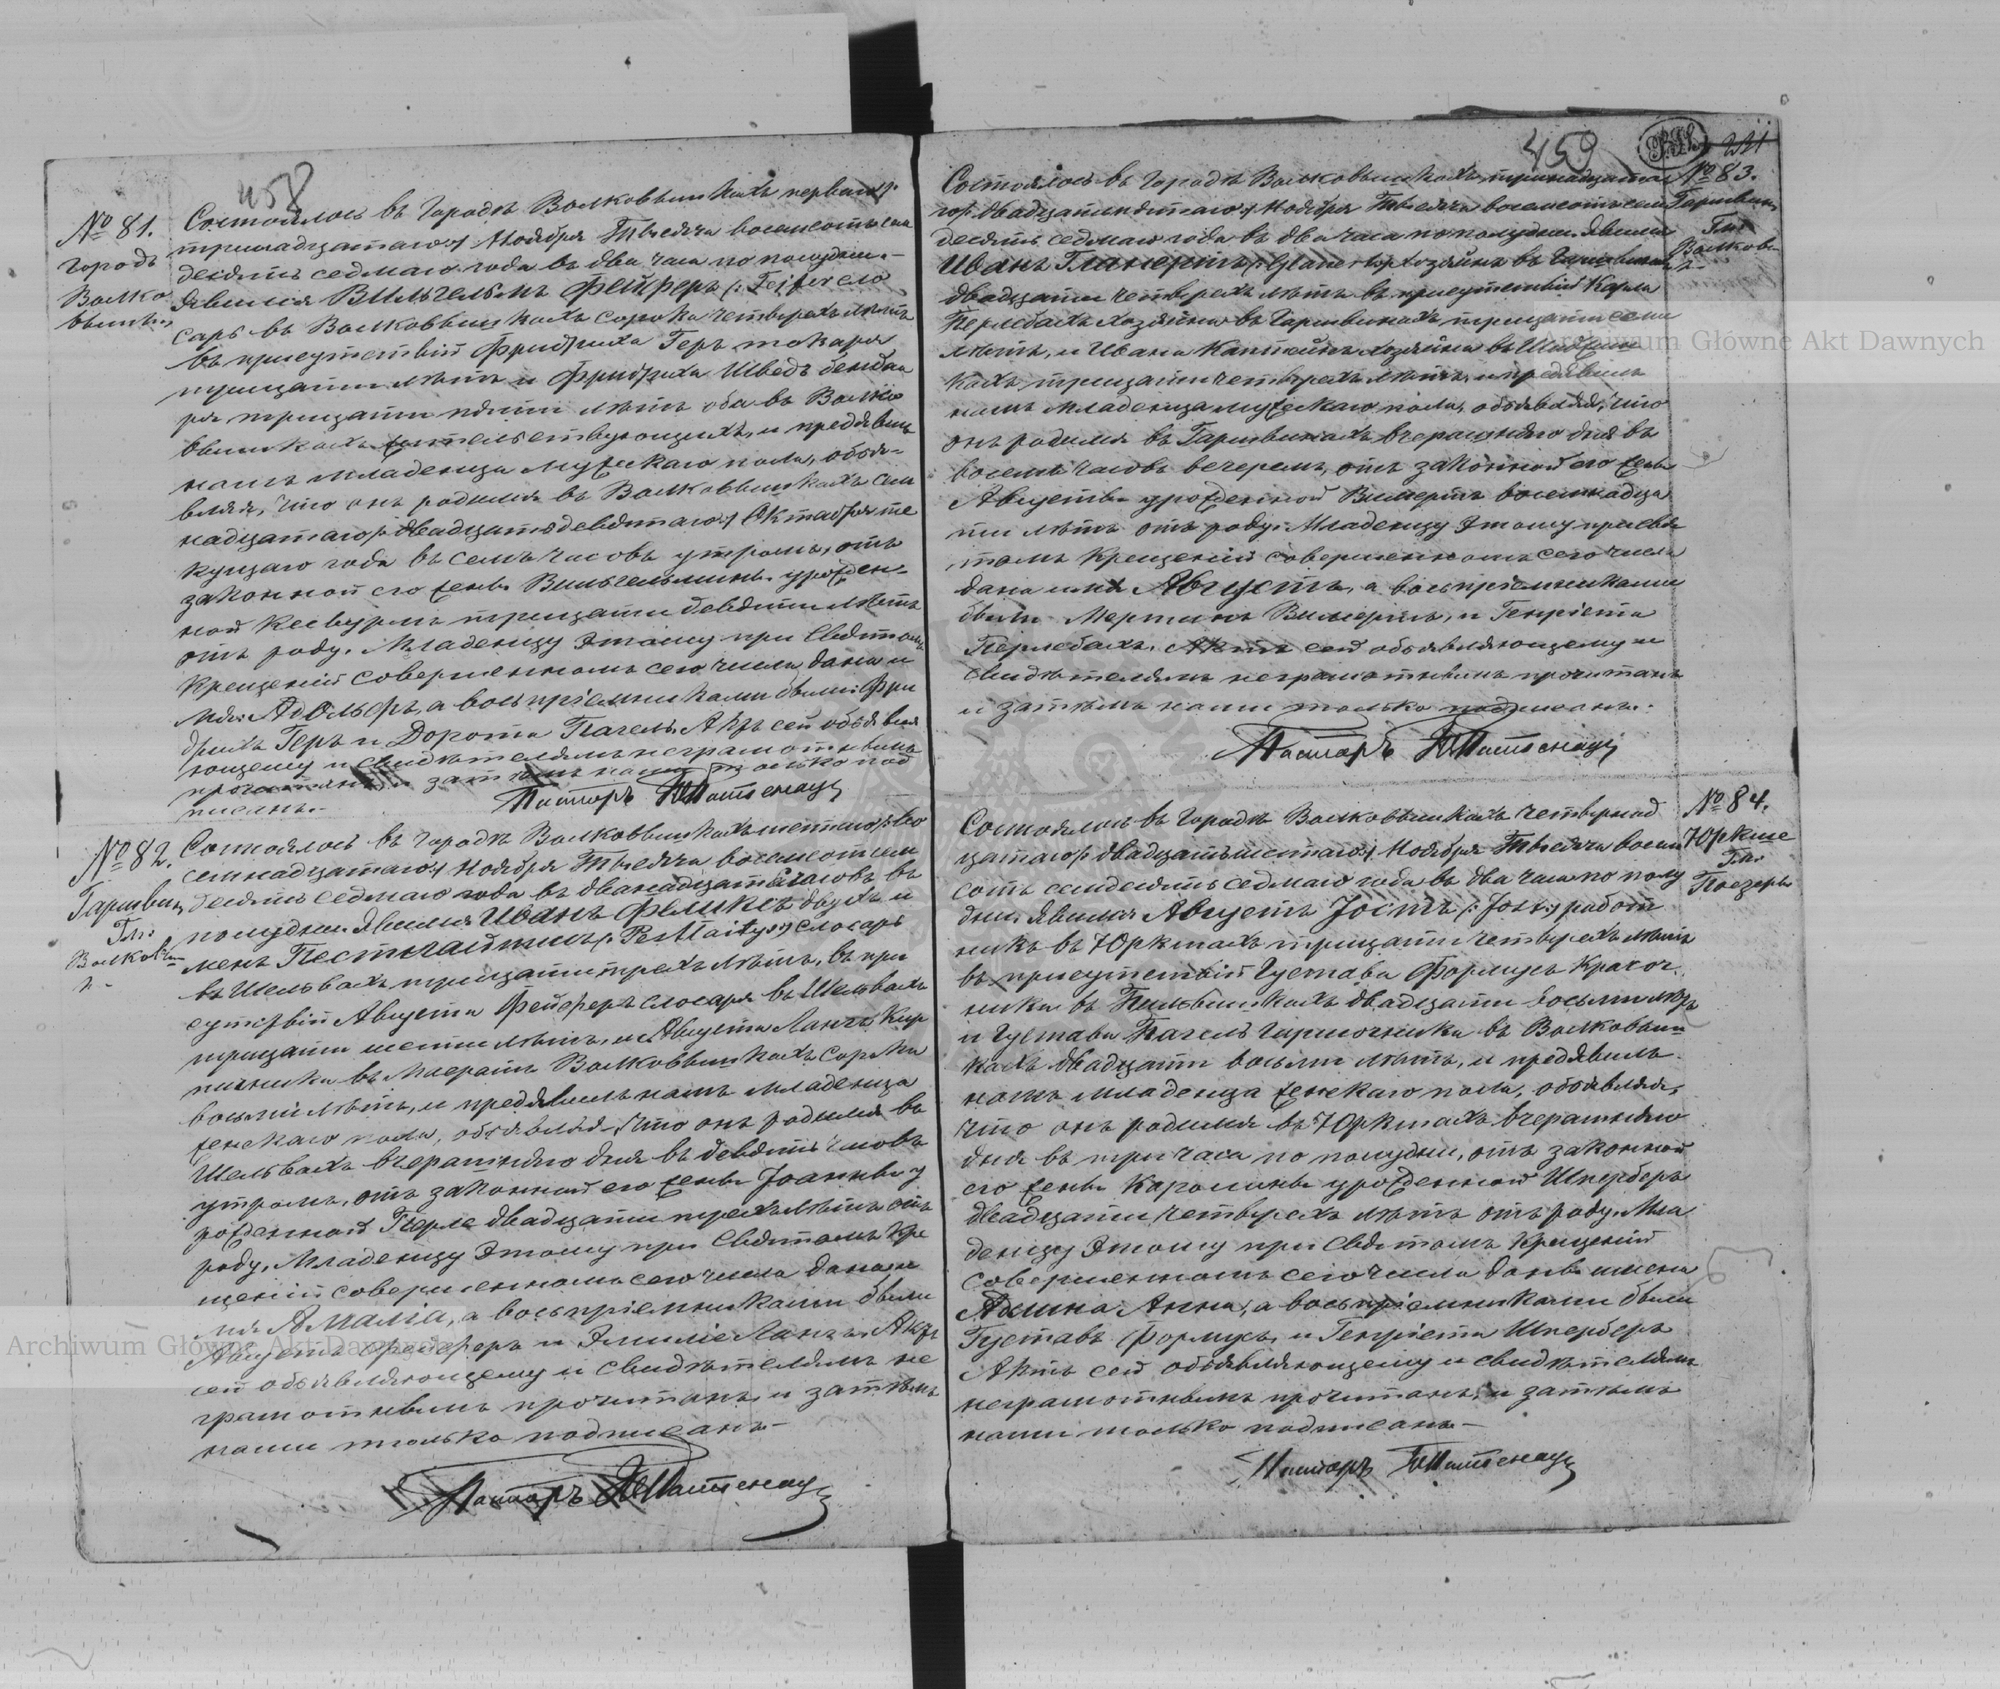 458
№ 81.
городъ
Волко
вышки
Состоялось въ городѣ Волковышкахъ перваго /:
тринадцатаго :/ Ноября Тысяча восемьсотъ семь
десятъ седмаго года въ два часа по полудни.-
Явился Вильгельмъ Фейферъ /: Fejfer сло
сарь въ Волковышкахъ сорока четырехъ лѣтъ
въ присутствіи Фридриха Геръ токаря
трицати лѣтъ и Фридриха Шведъ бондаря
ря трицати пяти лѣтъ оба въ Волко
вышкахъ жительствующихъ, и предявилъ
намъ младенца мужескаго пола, объя-
вляя, что онъ родился въ Волковышкахъ сем
надцатаго /: двадцатядевятаго :/ Октабря те
кущаго года въ семь часовъ утромъ, отъ
законной его жены Вильгельмины урожден-
ной трицати девяти лѣтъ
отъ роду. Младенцу этому при Святомъ
Крещеніи совершенномъ сего числа дано и
мя Адольфъ, а воспріемниками были: Фри
дрихъ Геръ и Дорота Пагель. Актъ сей объявля
ющему и свидѣтелямъ неграмотнымъ
прочитанъ, и затѣмъ нами только под
писанъ.-
Пасторъ
№ 82.
Гаршвин
Гм:
Волковы
Состоялось въ городѣ Волковышкахъ шестаго /: во
семнадцатаго :/ Ноября Тысяча восемьсотъ семь
десятъ седмаго года въ дванадцать часовъ въ
полудни. Явился Иванъ Фыликсъ двухъ и
менъ Пестлайтисъ /: Pestlaitys :/ слосарь
въ Шельвахъ трицати трехъ лѣтъ, въ при
сутствіи Августа Фейферъ слосаря въ Шельвахъ
трицати шести лѣтъ, и Августа Лангъ Кир
пичника въ Маіератъ Волковышкахъ сорока
восьми лѣтъ, и предявилъ намъ младенца
женскаго пола, объявляя, что онъ родился въ
Шельвахъ вчерашняго дня въ девять часовъ
утромъ, отъ законной его жены Іоанны у
рожденной Перле двадцати трехъ лѣтъ отъ
роду. Младенцу этому при Святомъ Кре
щеніи совершенномъ сего числа дано и
мя Амалія, а воспріемниками были
Августъ Фейферъ и Эмиліе Лангъ. Актъ
сей объявляющему и свидѣтелямъ не
грамотнымъ прочитанъ и затѣмъ
нами только подписанъ.-
Пасторъ
459
231
№ 83.
Гаршвин
Гм:
Волковы
Состоялось въ городѣ Волковышкахъ, тринадцата
го /: двадцатипятаго :/ Ноября Тысяча восемьсотъ семь
десятъ седмаго года въ два часа по полудни. Явился
Иванъ Гланертъ /: Glanert :/ хозяинъ въ Гаршвинахъ
двадцати четырехъ лѣтъ въ присутствіи Карла
Перлебахъ хозяина въ Гаршвинахъ, трицати семи
лѣтъ, и Ивана хозяина въ
кахъ трицати четырехъ лѣтъ, и предявилъ
намъ младенца мужескаго пола, объявляя, что
онъ родился въ Гаршвинахъ вчерашняго дня въ
восемь часовъ вечеремъ, отъ законной его жены
Августы урожденной Вимертъ восемнадца
ти лѣтъ отъ роду. Младенцу этому при Свя
томъ Крещеніи совершенномъ сего числа
дано имя Августъ, а воспріемниками
были Мертинъ Вимертъ, и Генріета
Перлебахъ. Актъ сей объявляющему и
свидѣтелямъ неграмотнымъ прочитанъ
и затѣмъ нами только подписанъ.-
Пасторъ
№ 84.
Юркше
Гм:
Поезеры
Состоялось въ городѣ Волковышкахъ четырнад
цатаго /: двадцатьшестаго :/ Ноября Тысяча восемь
сотъ семдесятъ седмаго года въ два часа по полу
дни. Явился Августъ Јостъ /: Jost :/ работ
никъ въ Юркшахъ трицати четырехъ лѣтъ
въ присутствіи Густава Формусъ
ника въ Пильвишкахъ двадцати восьми лѣтъ
и Густава Пагель Гарночника въ Волковыш
кахъ двадцати восьми лѣтъ, и предявилъ
намъ младенца женскаго пола, объявляя,
что онъ родился въ Юркшахъ вчерашняго
дня въ три часа по полудни, отъ законной
его жены Каролины урожденной Шперберъ
двадцати четырехъ лѣтъ отъ роду. Мла
денцу этому при Святомъ Крещеніи
совершенномъ сего числа даны имена
Адлина Анна, а воспріемниками были
Густавъ Формусъ, и Генріета Шперберъ
Актъ сей объявляющему и свидѣтелямъ
неграмотнымъ прочитанъ, и затѣмъ
нами только подписанъ.-
Пасторъ
Archiwum Główne Akt Dawnych
Archiwum Główne Akt Dawnych